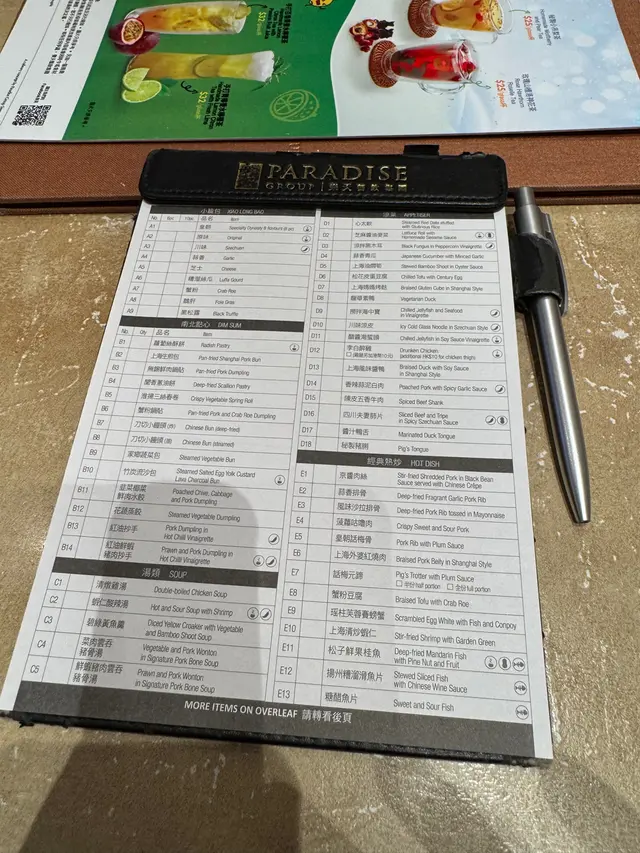 $32
$32
$25
$25
Rosella Tea
PARADISE
GROUP
小籠包 XIAO LONG BAO
No. Item
A1 皇朝
A2 原味 Original
A3 川味 Szechuan
A4 蒜香 Garlic
A5 芝士 Cheese
A6 Luffa Gourd
A7 蟹粉 Crab Roe
A8 鵝肝 Foie Gras
A9 黑松露 Black Truffle
南北點心 DIM SUM
No. Qty 品名 Item
B1 蘿蔔絲酥餅 Radish Pastry
B2 上海生煎包 Pan-fried Shanghai Pork Bun
B3 無錫鮮肉鍋貼 Pan-fried Pork Dumpling
B4 蘭香蔥油餅 Deep-fried Scallion Pastry
B5 淮揚三絲春卷 Crispy Vegetable Spring Roll
B6 蟹粉鍋貼 Pan-fried Pork and Crab Roe Dumpling
B7 刀切小饅頭 (炸) Chinese Bun (deep-fried)
B8 刀切小饅頭 (蒸) Chinese Bun (steamed)
B9 家鄉蔬菜包 Steamed Vegetable Bun
B10 竹炭流沙包 Steamed Salted Egg Yolk Custard
Lava Charcoal Bun
B11 韮菜椰菜 Poached Chive, Cabbage
鮮肉水餃 and Pork Dumpling
B12 花蔬蒸餃 Steamed Vegetable Dumpling
B13 紅油抄手 Pork Dumpling in
Hot Chilli Vinaigrette
B14 紅油鮮蝦 Prawn and Pork Dumpling in
豬肉抄手 Hot Chilli Vinaigrette
湯類 SOUP
C1 清燉雞湯 Double-boiled Chicken Soup
C2 蝦仁酸辣湯 Hot and Sour Soup with Shrimp
C3 碧綠黃魚羹 Diced Yellow Croaker with Vegetable
and Bamboo Shoot Soup
C4 菜肉雲吞 Vegetable and Pork Wonton
豬骨湯 in Signature Pork Bone Soup
C5 鮮蝦豬肉雲吞 Prawn and Pork Wonton
豬骨湯 in Signature Pork Bone Soup
APPETISER
D1 心太軟 Steamed Red Date stuffed
with Glutinous Rice
D2 芝麻醬油麥菜 Lettuce Roll with
Homemade Sesame Sauce
D3 涼拌黑木耳 Black Fungus in Peppercorn Vinaigrette
D4 蒜香青瓜 Japanese Cucumber with Minced Garlic
D5 上海油燜筍 Stewed Bamboo Shoot in Oyster Sauce
D6 松花皮蛋豆腐 Chilled Tofu with Century Egg
D7 上海媽媽烤麩 Braised Gluten Cubs in Shanghai Style
D8 Vegetarian Duck
D9 撈拌海中寶 Chilled Jellyfish and Seafood
in Vinaigrette
D10 川味涼皮 Icy Cold Glass Noodle in Szechuan Style
D11 醋醬海蜇頭 Chilled Jellyfish in Soy Sauce Vinaigrette
D12 李白醉雞 Drunken Chicken
(additional HK$10 for chicken thigh)
D13 上海風味醬鴨 Braised Duck with Soy Sauce
in Shanghai Style
D14 香辣蒜泥白肉 Poached Pork with Spicy Garlic Sauce
D15 滷皮五香牛肉 Spiced Beef Shank
D16 四川夫妻肺片 Sliced Beef and Tripe
in Spicy Szechuan Sauce
D17 醬汁鴨舌 Marinated Duck Tongue
D18 秘製豬脷 Pig's Tongue
經典熱炒 HOT DISH
E1 京醬肉絲 Stir-fried Shredded Pork in Black Bean
Sauce served with Chinese Crêpe
E2 蒜香排骨 Deep-fried Fragrant Garlic Pork Rib
E3 風味沙拉排骨 Deep-fried Pork Rib tossed in Mayonnaise
E4 菠蘿咕嚕肉 Crispy Sweet and Sour Pork
E5 皇朝話梅骨 Pork Rib with Plum Sauce
E6 上海外婆紅燒肉 Braised Pork Belly in Shanghai Style
E7 話梅元蹄 Pig's Trotter with Plum Sauce
半份 half portion 全份 full portion
E8 蟹粉豆腐 Braised Tofu with Crab Roe
E9 瑤柱芙蓉賽螃蟹 Scrambled Egg White with Fish and Conpoy
E10 上海清炒蝦仁 Stir-fried Shrimp with Garden Green
E11 松子鮮果桂魚 Deep-fried Mandarin Fish
with Pine Nut and Fruit
E12 揚州糟溜滑魚片 Stewed Sliced Fish
with Chinese Wine Sauce
E13 糖醋魚片 Sweet and Sour Fish
MORE ITEMS ON OVERLEAF 請轉看後頁